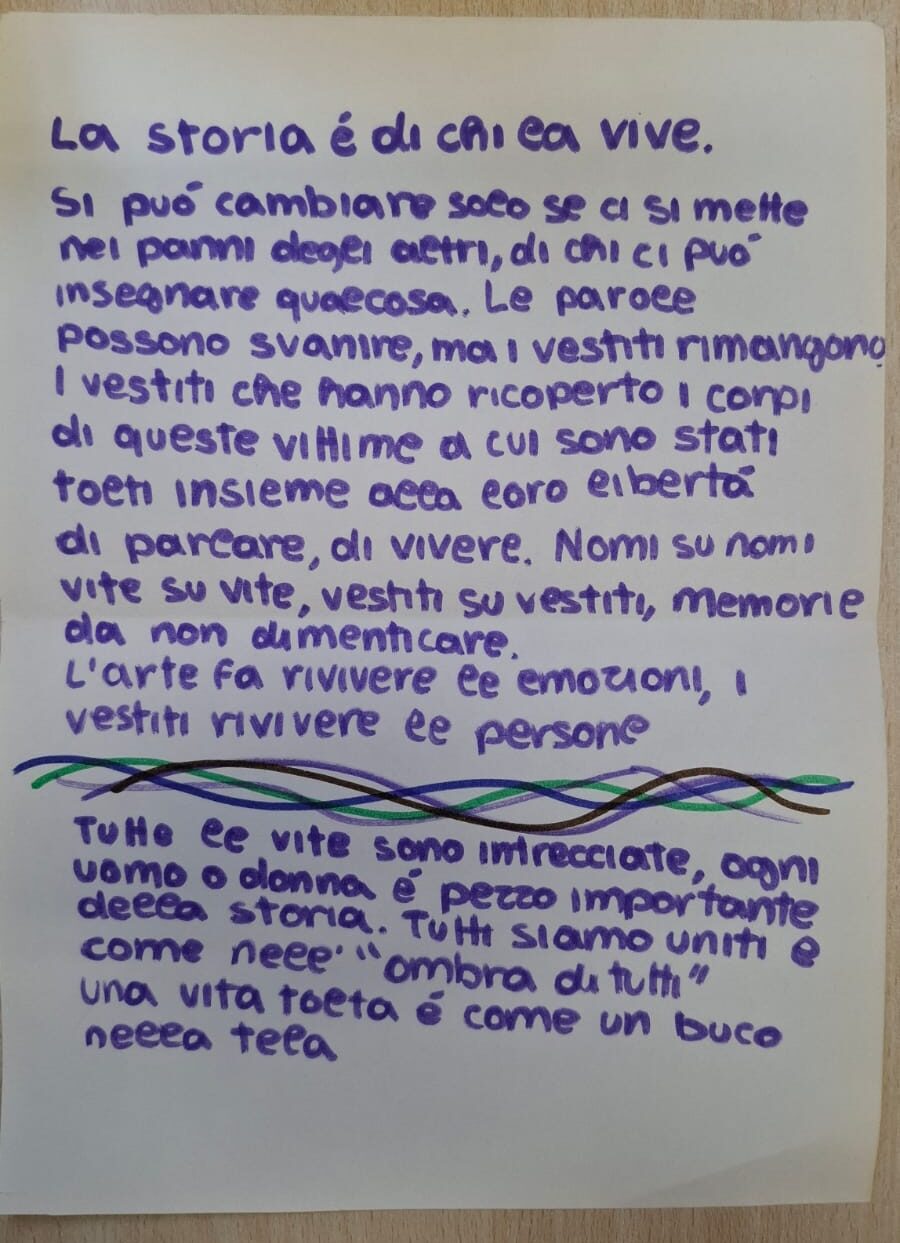 La storia é di chi la vive.
Si puó cambiare solo se ci si mette
nei panni degli altri, di chi ci puó
insegnare qualcosa. Le parole
possono svanire, ma i vestiti rimangono.
I vestiti che hanno ricoperto i corpi
di queste vittime a cui sono stati
tolti insieme alla loro libertá
di parlare, di vivere. Nomi su nomi
vite su vite, vestiti su vestiti, memorie
da non dimenticare.
L'arte fa rivivere le emozioni, i
vestiti rivivere le persone
Tutte le vite sono intrecciate, ogni
uomo o donna é pezzo importante
della storia. Tutti siamo uniti e
come nell' "ombra di tutti"
una vita tolta é come un buco
nella tela